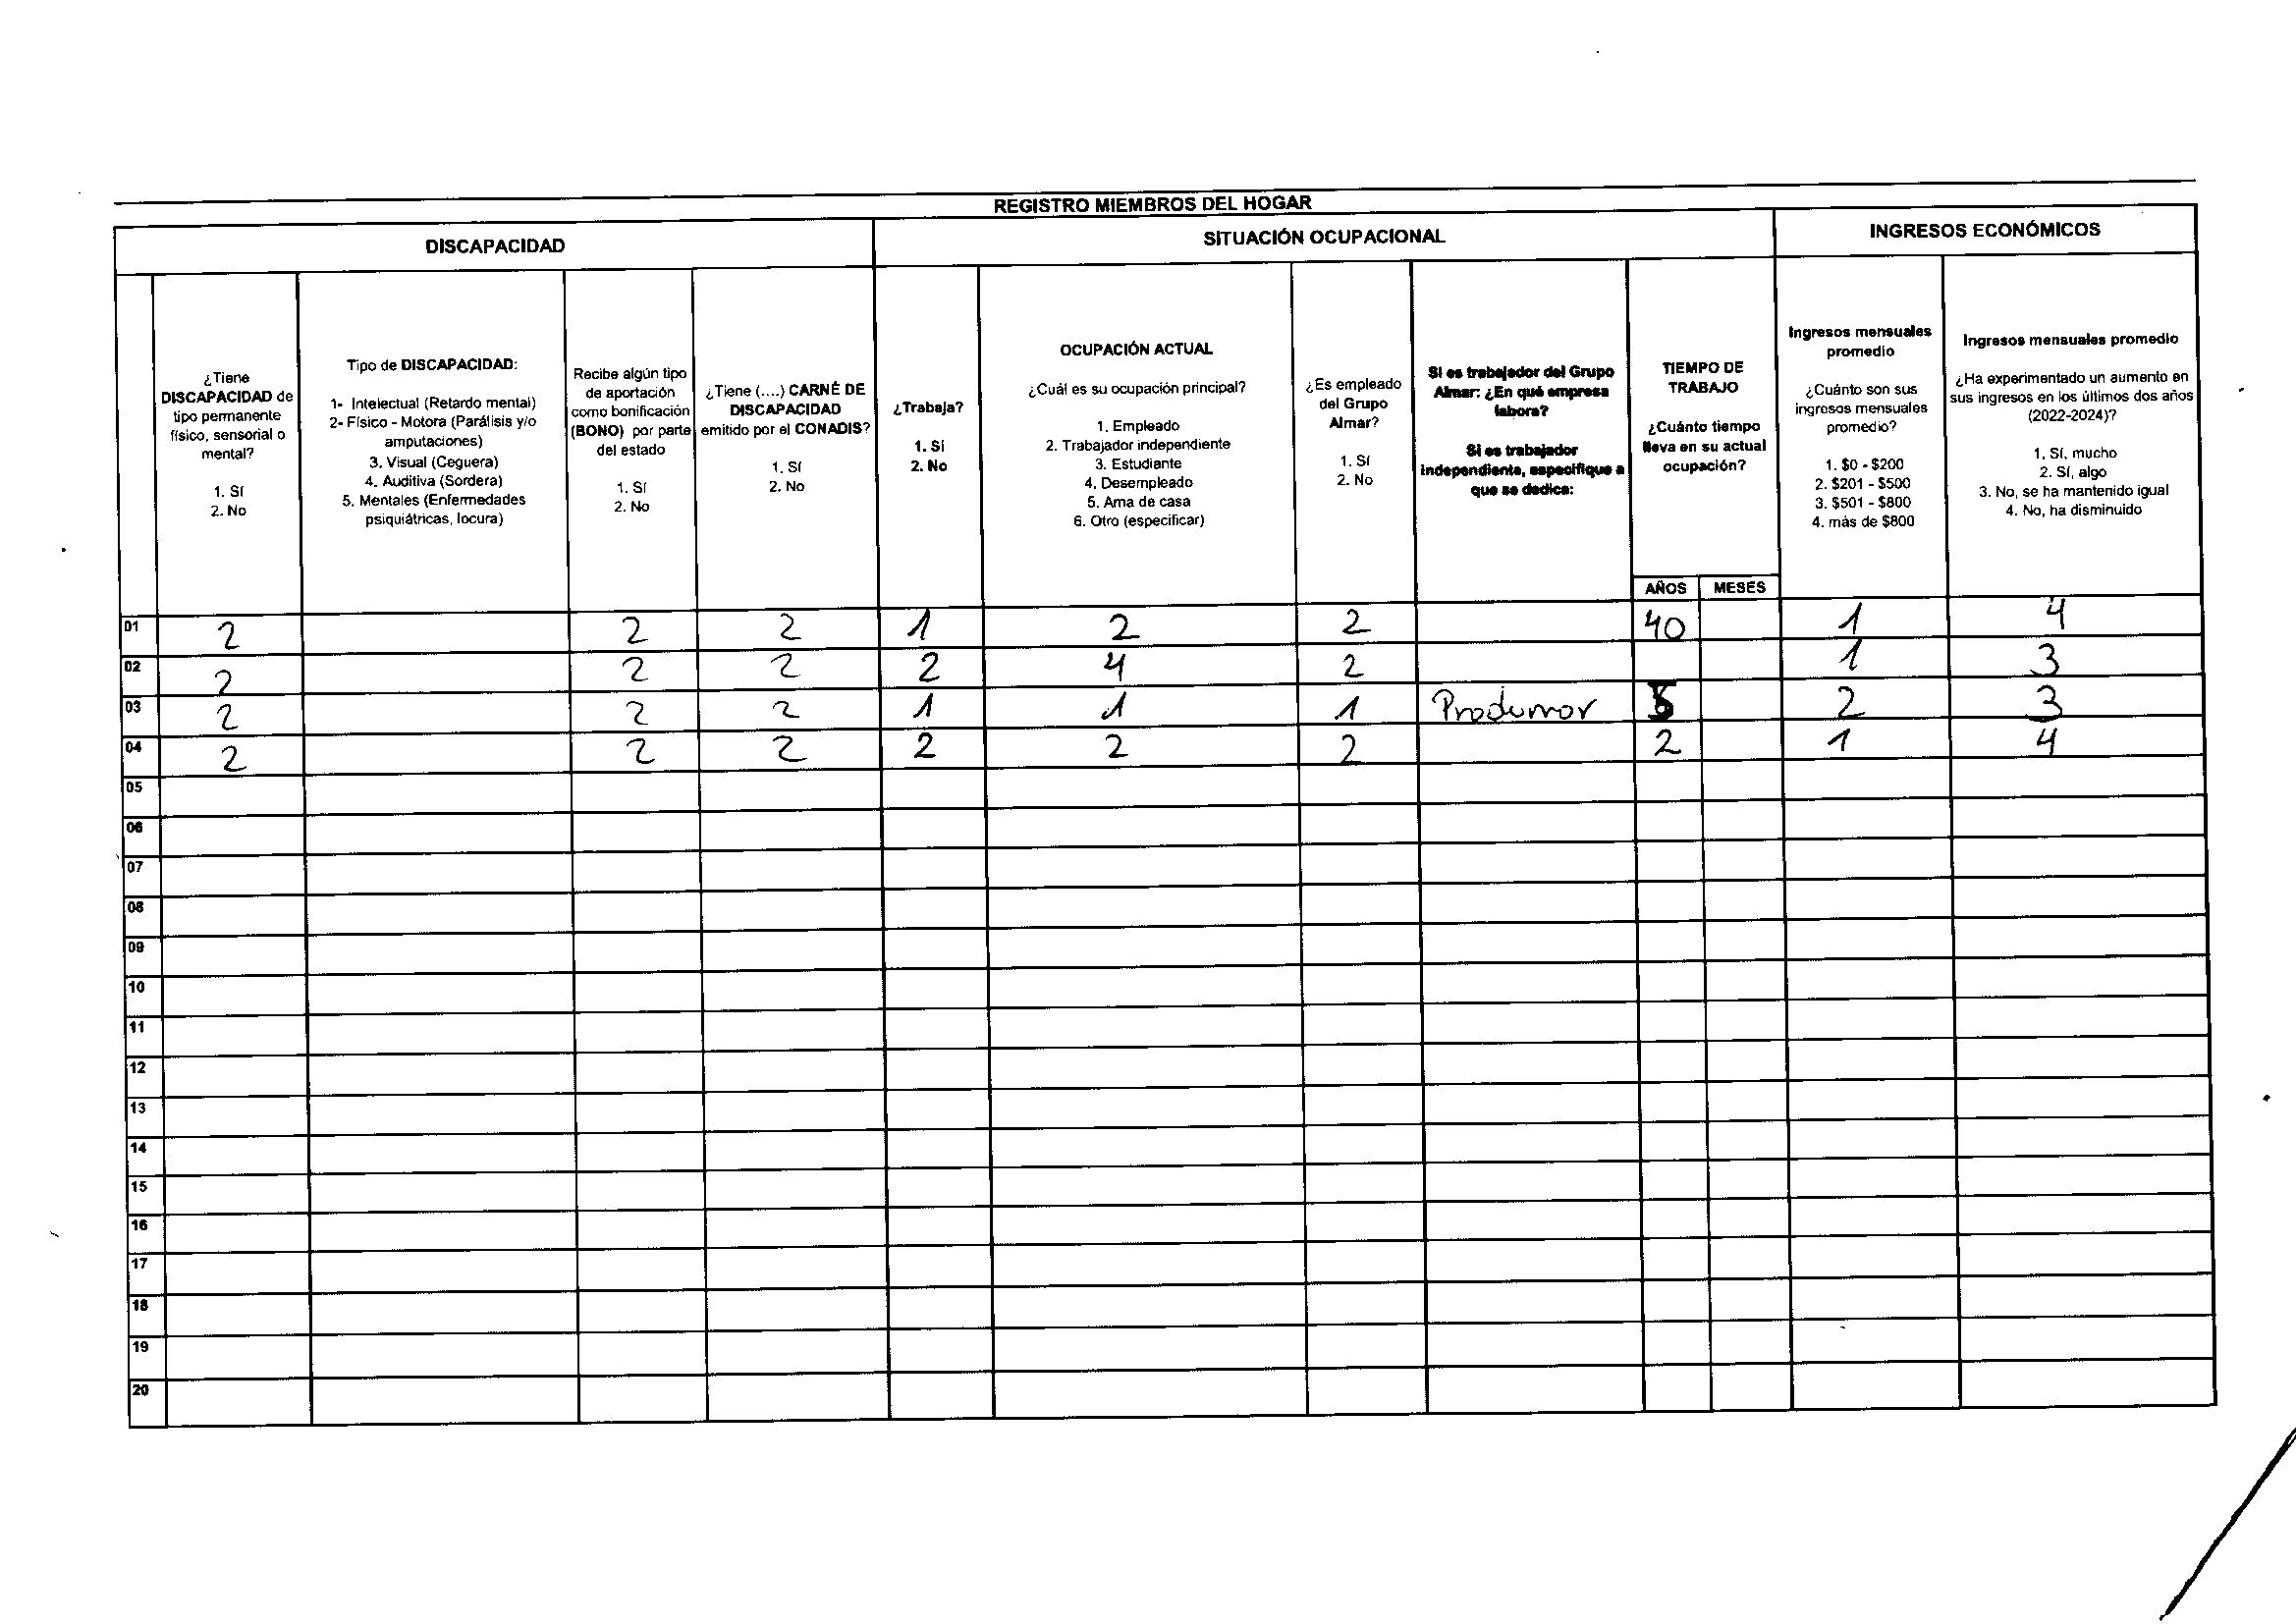 REGISTRO MIEMBROS DEL HOGAR
DISCAPACIDAD
SITUACIÓN OCUPACIONAL
INGRESOS ECONÓMICOS
¿Tiene
DISCAPACIDAD de
tipo permanente
físico, sensorial o
mental?
1. Sí
2. No
Tipo de DISCAPACIDAD:
1- Intelectual (Retardo mental)
2- Físico - Motora (Parálisis y/o
amputaciones)
3. Visual (Ceguera)
4. Auditiva (Sordera)
5. Mentales (Enfermedades
psiquiátricas, locura)
Recibe algún tipo
de aportación
como bonificación
(BONO) por parte
del estado
1. Sí
2. No
¿Tiene (....) CARNÉ DE
DISCAPACIDAD
emitido por el CONADIS?
1. Sí
2. No
¿Trabaja?
1. Sí
2. No
OCUPACIÓN ACTUAL
¿Cuál es su ocupación principal?
1. Empleado
2. Trabajador independiente
3. Estudiante
4. Desempleado
5. Ama de casa
6. Otro (especificar)
¿Es empleado
del Grupo
Almar?
1. Sí
2. No
Si es trabajador del Grupo
Almar: ¿En qué empresa
labora?
Si es trabajador
independiente, especifique a
que se dedica:
TIEMPO DE
TRABAJO
¿Cuánto tiempo
lleva en su actual
ocupación?
AÑOS MESES
Ingresos mensuales
promedio
¿Cuánto son sus
ingresos mensuales
promedio?
1. $0 - $200
2. $201 - $500
3. $501 - $800
4. más de $800
Ingresos mensuales promedio
¿Ha experimentado un aumento en
sus ingresos en los últimos dos años
(2022-2024)?
1. Sí, mucho
2. Sí, algo
3. No, se ha mantenido igual
4. No, ha disminuido
01 2 2 2 1 2 2 40 1 4
02 2 2 2 2 4 2 1 3
03 2 2 2 1 1 1 Produmar 2 3
04 2 2 2 2 2 2 2 1 4
05
06
07
08
09
10
11
12
13
14
15
16
17
18
19
20